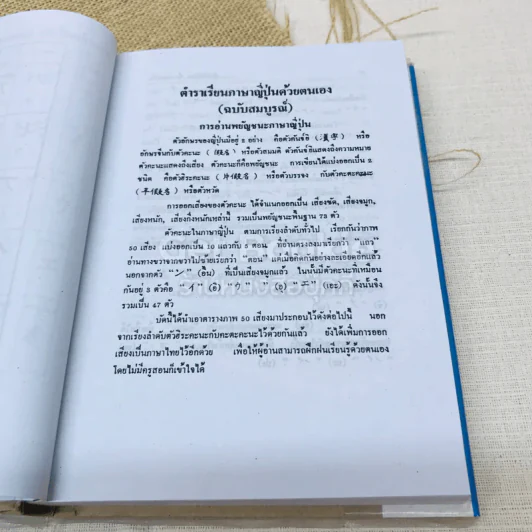 ตำราเรียนภาษาญี่ปุ่นด้วยตนเอง
(ฉบับสมบูรณ์)
การอ่านพยัญชนะภาษาญี่ปุ่น
ตัวอักษรของญี่ปุ่นมีอยู่ ๒ อย่าง คือตัวคันซ์อิ (漢字) หรือ
อักษรจีนกับตัวคะนะ (仮名) หรือตัวสมมติ ตัวคันซ์อิแสดงถึงความหมาย
ตัวคะนะแสดงถึงเสียง ตัวคะนะก็คือพยัญชนะ การเขียนได้แบ่งออกเป็น ๒
ชนิด คือตัวฮิระคะนะ (片仮名) หรือตัวบรรจง กับตัวคะตะคะนะ
(平仮名) หรือตัวหวัด
การออกเสียงของตัวคะนะ ได้จำแนกออกเป็น เสียงชัด, เสียงจมูก,
เสียงหนัก, เสียงกึ่งหนักเหล่านี้ รวมเป็นพยัญชนะพื้นฐาน 73 ตัว
ตัวคะนะในภาษาญี่ปุ่น ตามการเรียงลำดับทั่วไป เรียกกันว่าภาพ
50 เสียง แบ่งออกเป็น 10 แถวกับ 5 ตอน ที่อ่านตรงลงมาเรียกว่า "แถว"
อ่านทางขวางจากขวาไปซ้ายเรียกว่า "ตอน" แต่เมื่อคิดกันอย่างละเอียดแล้ว
นอกจากตัว "ン" (อึน) ที่เป็นเสียงจมูกแล้ว ในนั้นมีตัวคะนะที่เหมือน
กันอยู่ 3 ตัวคือ "イ" (อิ) "ウ" (อุ) "エ" (เอะ) ดังนั้นจึง
รวมเป็น 47 ตัว
บัดนี้ได้นำเอาตารางภาพ 50 เสียงมาประกอบไว้ดังต่อไปนี้ นอก
จากเรียงลำดับตัวฮิระคะนะกับคะตะคะนะไว้ด้วยกันแล้ว ยังได้เพิ่มการออก
เสียงเป็นภาษาไทยไว้อีกด้วย เพื่อให้ผู้อ่านสามารถฝึกฝนเรียนรู้ด้วยตนเอง
โดยไม่มีครูสอนก็เข้าใจได้